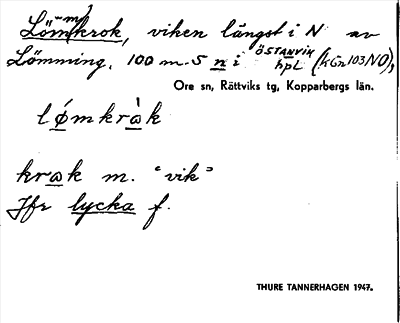 Lömkrok, viken längst i N av
Lömming. 100 m. S n i ÖSTANVIK hpl (kGn 103 NO),
Ore sn, Rättviks tg, Kopparbergs län.
lǿmkrὰk
krak m. "vik"
Jfr lycka f.
THURE TANNERHAGEN 1947.